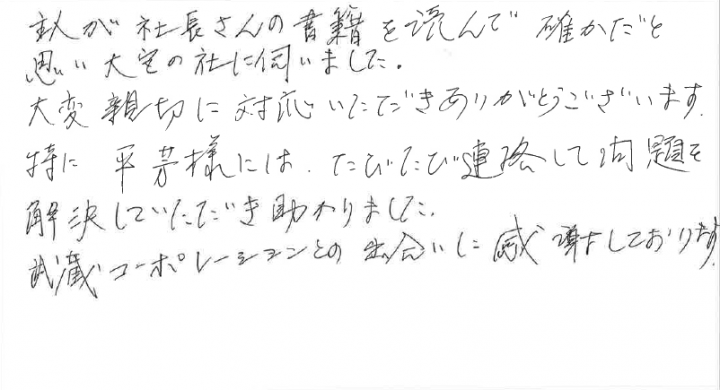 主人が社長さんの書籍を読んで確かだと
思い大宮の社に伺いました。
大変親切に対応いただきありがとうございます。
特に平芳様には、たびたび連絡して問題を
解決していただき助かりました。
武蔵コーポレーションとの出会いに感謝しております。